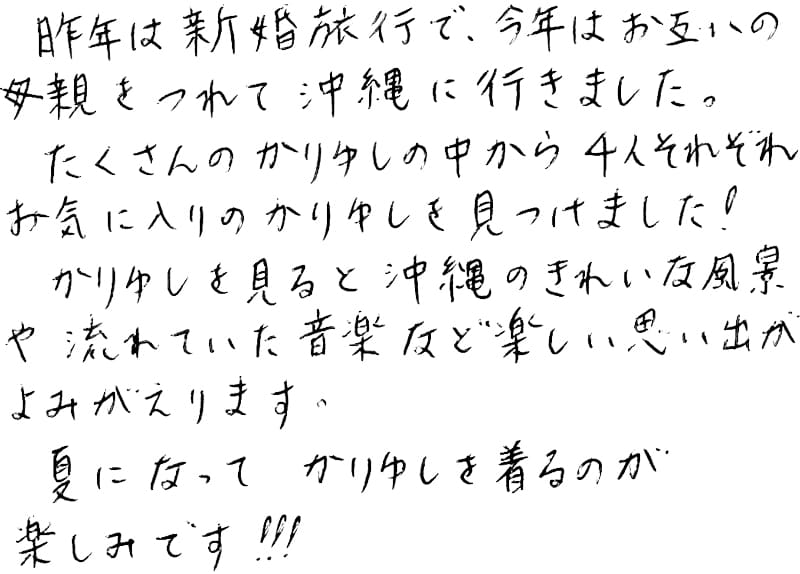 昨年は新婚旅行で、今年はお互いの
母親をつれて沖縄に行きました。
たくさんのかりゆしの中から4人それぞれ
お気に入りのかりゆしを見つけました!
かりゆしを見ると沖縄のきれいな風景
や流れていた音楽など楽しい思い出が
よみがえります。
夏になって かりゆしを着るのが
楽しみです!!!